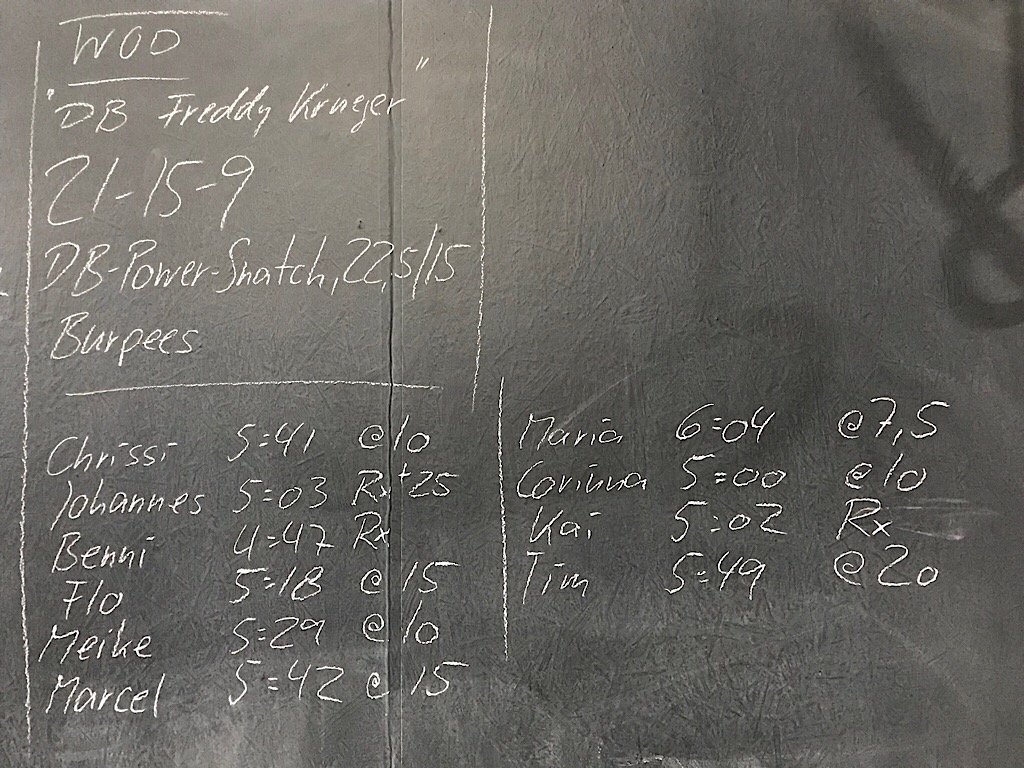 WOD
"DB Freddy Krueger"
21-15-9
DB-Power-Snatch, 22,5/15
Burpees
Chrissi 5:41 @10
Johannes 5:03 Rx+25
Benni 4:47 Rx
Flo 5:18 @15
Meike 5:29 @10
Marcel 5:42 @15
Maria 6:04 @7,5
Corinna 5:00 @10
Kai 5:02 Rx
Tim 5:49 @20